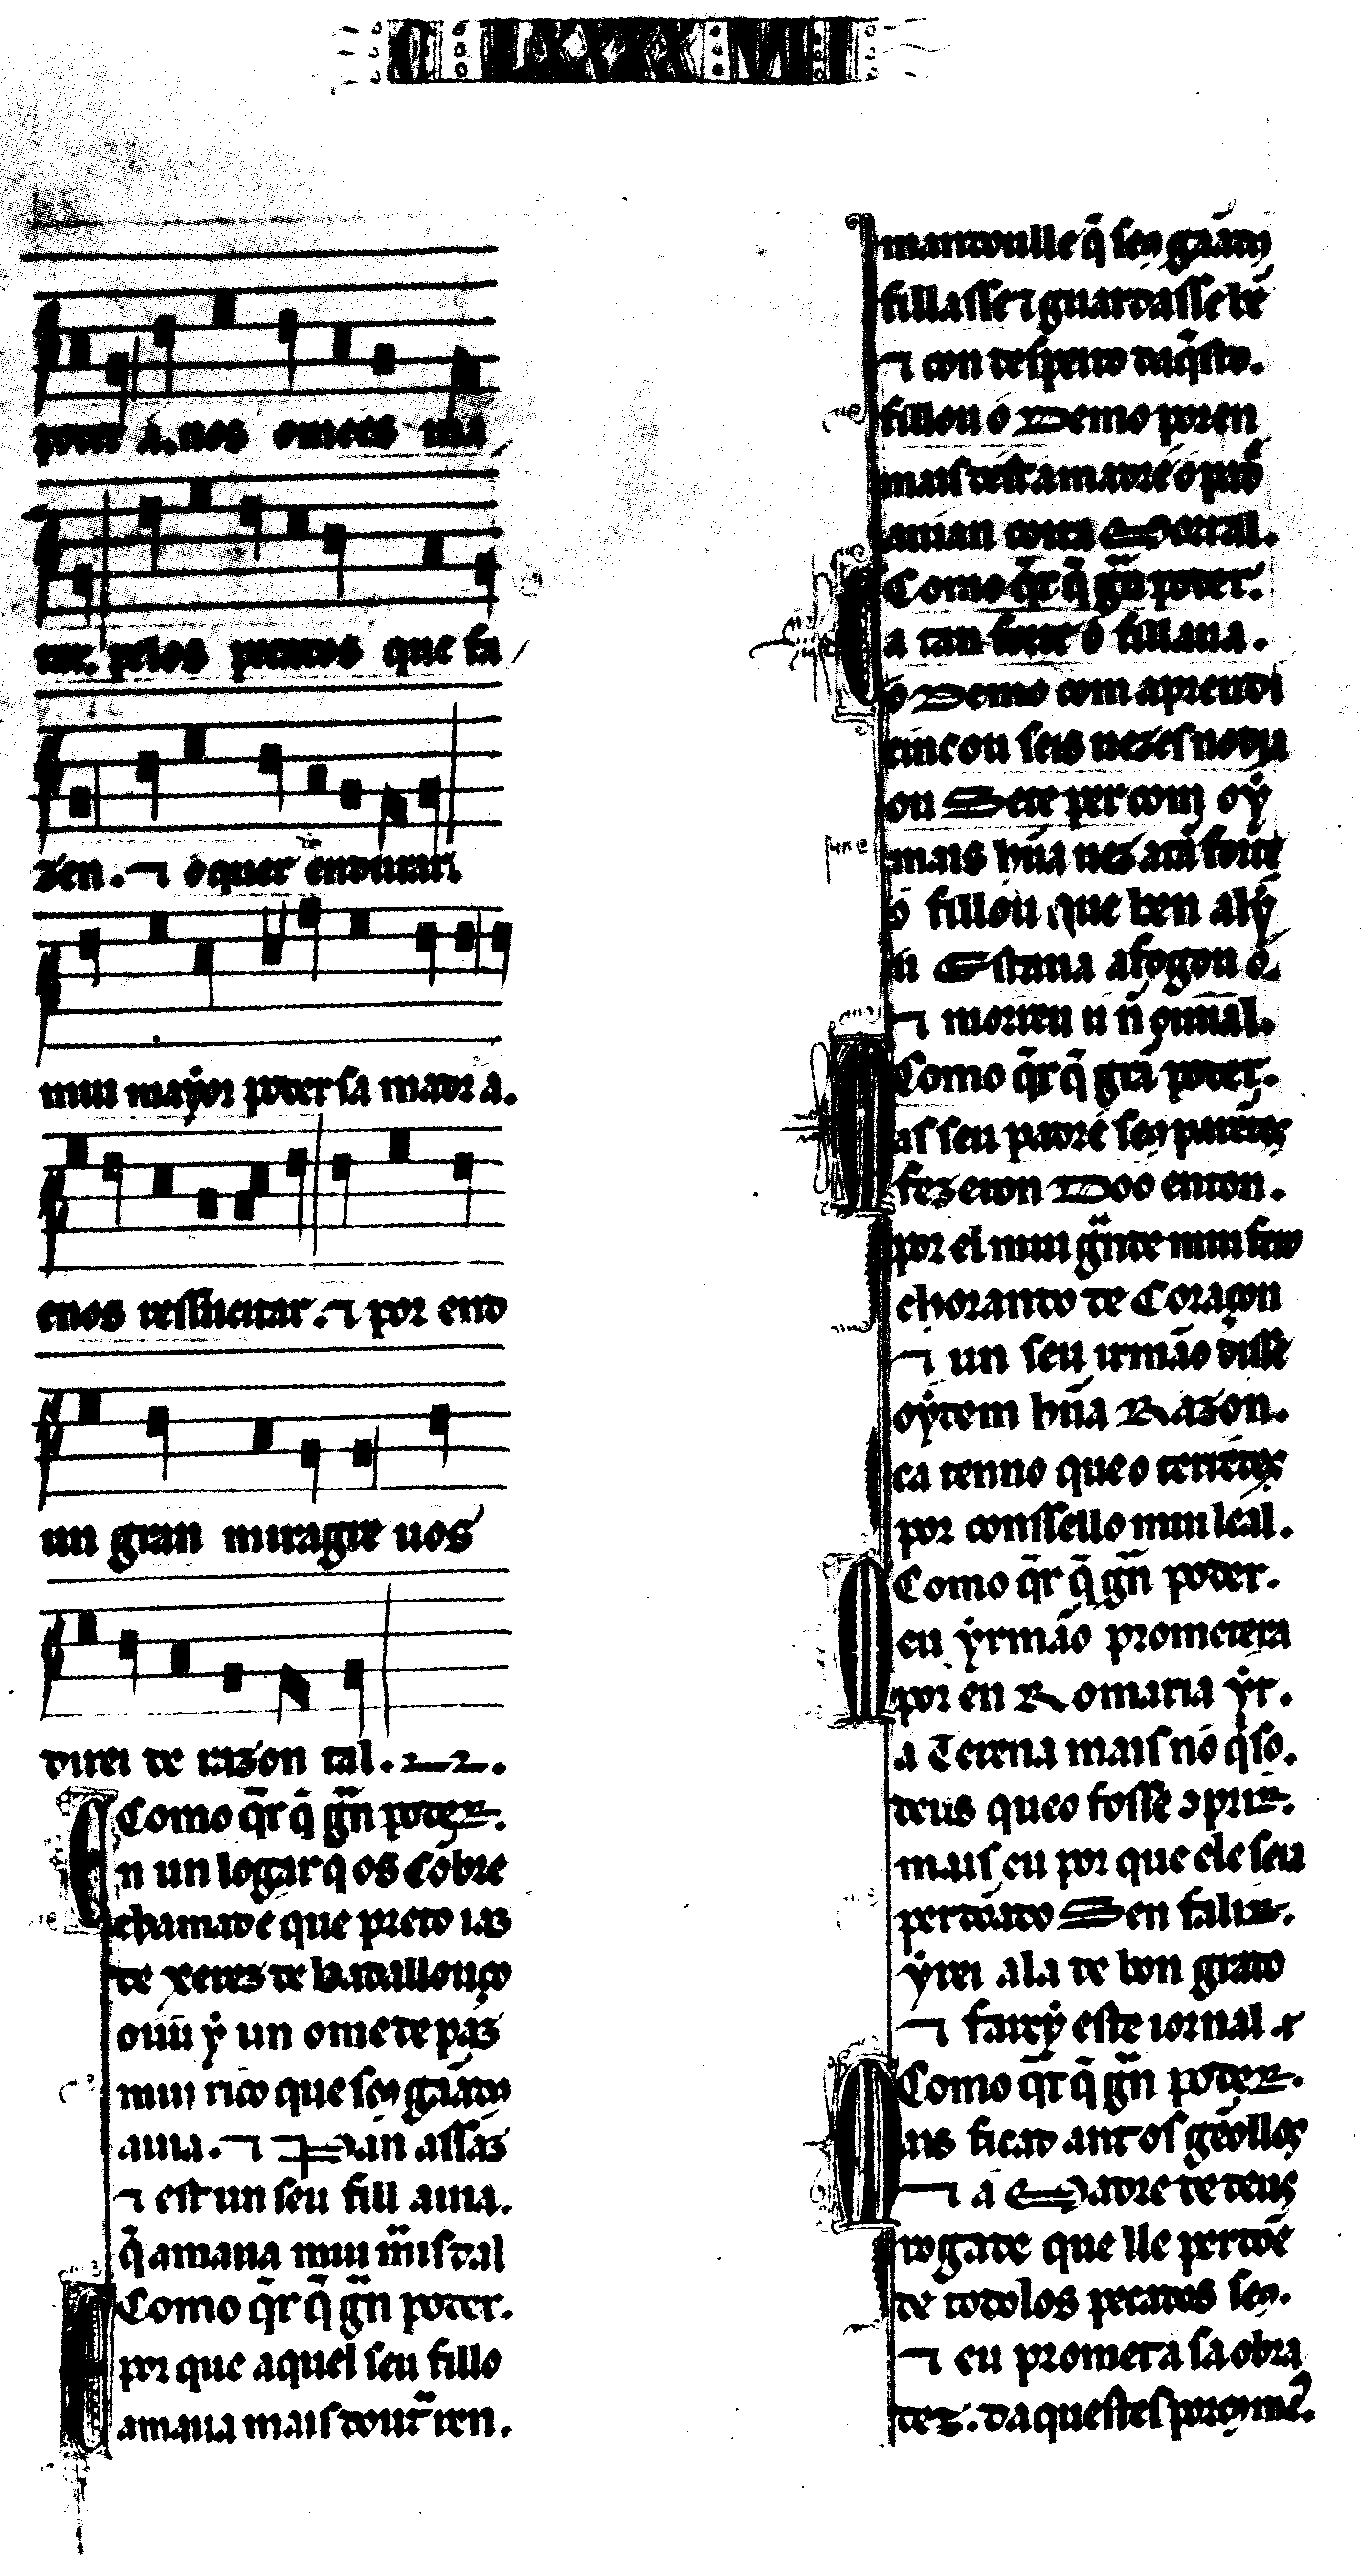 poder á. nos ẽmẽes ma
tar. pelos pecados que fa
zen. ⁊ o quer ẽndurar.
mui maẏor poder sa madr a.
enos ressucitar. ⁊ por end
un gran miragre uos
direi de razon tal.
Como q̃r q̃ gñ poder.
En un logar q̃ os Cóbre
chamad e que preto iaz
de xerez de badallouço
ouuí ẏ un ome de paz
mui rico que sen grãado
auia. ⁊ Pan assaz
⁊ est un seu fill auia.
q̃ amaua mui m̃is dal
Como q̃r q̃ gñ poder.
por que aquel seu fillo
amaua mais doutˈ ren.
mandoulle q̃ seu grãado
fillasse ⁊ guardasse bẽ
⁊ con despeito daq̃sto.
fillou ó Demo poren
mais dest a madre o padˈ
auian coita Mortal.
Como q̃r q̃ gñ poder.
E a tan forte o fillaua.
o Demo com aprendi
cinc ou seis uezes no dia
ou Sete per com oẏ
mais hũa uez atã forte
o fillou que ben alẏ
u Estaua afogou o.
⁊ morreu
Como q̃r q̃ grã poder.
Mas seu padre seu parẽtes
fezeron Doo enton.
por el mui gñde mui forte
chorando de Coraçon
⁊ un seu irmão disse
oẏdem hũa Razon.
ca tenno que o terredes
por conssello mui leal.
Como q̃r q̃ gñ poder.
Meu ẏrmão prometera
por en Romaria ẏr.
a Terena mais nõ q̃so.
deus que o fosse ɔprir.
mais eu por que ele seu
perdúado Sen falir.
ẏrei ala de bon grado
⁊ farey este iornal
Como q̃r q̃ gñ poder.
Mas ficad ant os geollos
⁊ a Madre de deus
rogade que lle perdõe
de todolos pecados seus.
⁊ eu promet a sa obra
dez. daquestes porcos meˀ.